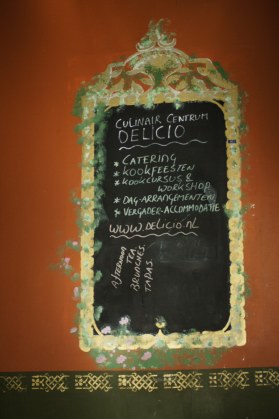 CULINAIR CENTRUM
DELICIO
* CATERING
* KOOKFEESTEN
* KOOKCURSUS &
WORKSHOP
* DAG-ARRANGEMENTEN
* VERGADER-ACCOMMODATIE
WWW.DELICIO.NL
AFTERNOON
TEA
BRUNCHES
TAPAS